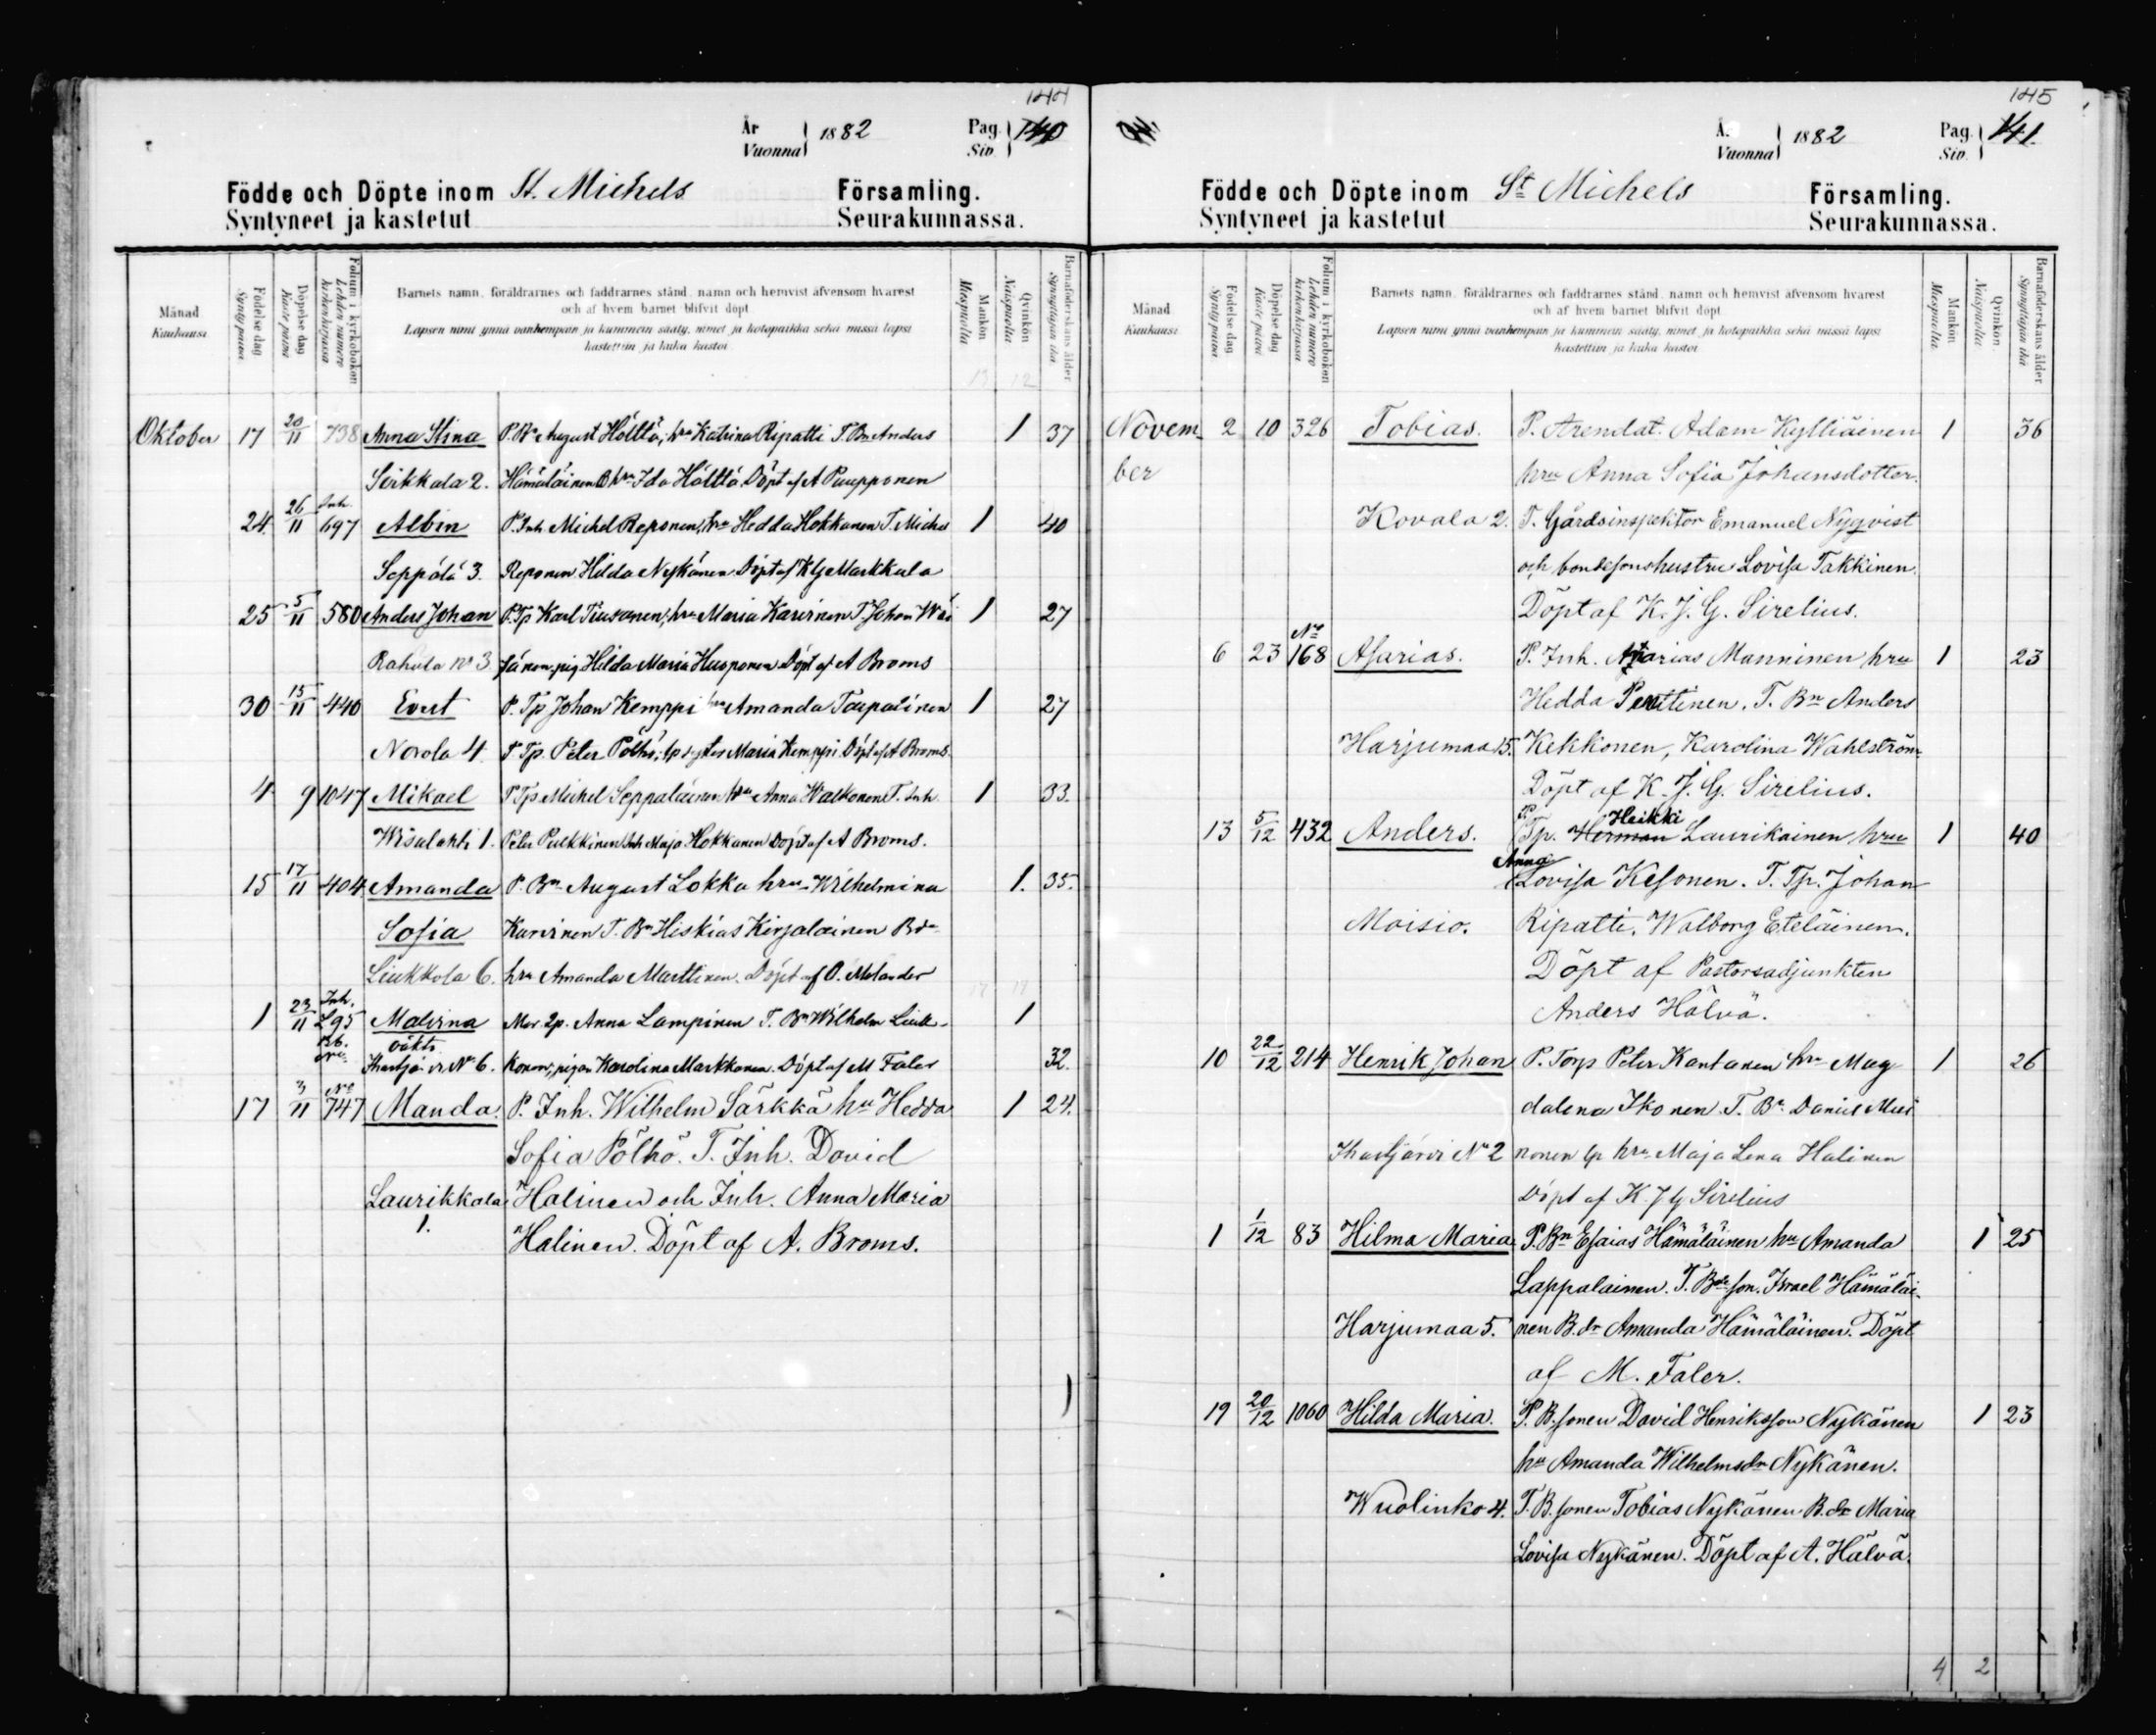 144
År
Vuonna
1882
Pag.
Siv.
140
Födde och Döpte inom St. Michels Församling.
Syntyneet ja kastetut Seurakunnassa.
Månad
Kuukausi
Födelse dag
Synty päivä
Döpelse dag
Kaste päivä
Folium i kyrkoboken
Lehden numero kirkonkirjassa
Barnets namn, föräldrarnes och faddrarnes stånd, namn och hemvist äfvensom hvarest
och af hvem barnet blifvit döpt
Lapsen nimi ynnä vanhempain ja kummein sääty, nimet ja kotopaikka sekä missä lapsi
kastettiin ja kuka kastoi
Mankön
Miespuolia
Qvinkön
Naispuolia
Barnaföderskans ålder
Synnyttäjän ikä
Oktober 17 20/11 738 Anna Stina P. Bn August Hölttä, hru Katrina Ripatti T. Bn Anders 1 37
Sirkkala 2. Hämäläinen B hru Ida Hölttä Döpt af A Paupponen
24 26/11 Inh. 697 Albin P. Inh Michel Reponen, hru Hedda Hokkanen T. Michel 1 40
Seppälä 3. Reponen Hilda Nykänen Döpt af KJG Markkula
25 5/11 580 Anders Johan P. Tp Karl Tiusanen, hru Maria Karinen T. Johan Wäi 1 27
Rahula No 3 sänen, pig Hilda Maria Husponen Döpt af A Broms
30 15/11 440 Evert P. Tp Johan Kemppi hru Amanda Taipalinen 1 27
Norola 4. T. Tp. Peter Pölhö, tp dotter Maria Kemppi Döpt af A Broms.
4 9 1047 Mikael P Tp Michel Seppäläinen hru Anna Walkonen T. Inh. 1 33.
Wisulahti 1. Peter Pulkkinen Inh Maja Hokkanen Döpt af A Broms.
15 17/11 404 Amanda P. Bn August Lokka hru Wilhelmina 1. 35.
Sofia Karinen T. Bn Hiskias Kirjalainen Bde
Liukkola 6. hru Amanda Marttinen. Döpt af O. Melander
1 23/11 Inh. 295 Malvina Mor lp. Anna Lampinen T. Bn Wilhelm Liuk- 1
Ihastjärvi No 6. konen, pigan Karolina Markkanen. Döpt af M Faler 32.
17 3/11 No 747 Manda. P. Inh. Wilhelm Särkkä hu Hedda 1 24.
Sofia Pölhö. T. Inh. David
Laurikkala Halinen och Inh. Anna Maria
1. Halinen. Döpt af A. Broms.
145
Å.
Vuonna
1882
Pag.
Siv.
141
Födde och Döpte inom St Michels Församling.
Syntyneet ja kastetut Seurakunnassa.
Månad
Kuukausi
Födelse dag
Synty päivä
Döpelse dag
Kaste päivä
Folium i kyrkoboken
Lehden numero kirkonkirjassa
Barnets namn, föräldrarnes och faddrarnes stånd, namn och hemvist äfvensom hvarest
och af hvem barnet blifvit döpt
Lapsen nimi ynnä vanhempain ja kummein sääty, nimet ja kotopaikka sekä missä lapsi
kastettiin ja kuka kastoi
Mankön
Miespuolia
Qvinkön
Naispuolia
Barnaföderskans ålder
Synnyttäjän ikä
Novem 2 10 326 Tobias. P. Arendat. Adam Kylliäinen 1 36
ber hru Anna Sofia Johansdotter.
Kovala 2. T. Gårdsinspektor Emanuel Nyqvist
och bondesonshustru Lovisa Takkinen.
Döpt af K. J. G. Sirelius.
6 23 No 168 Asarias. P. Inh. Asarias Manninen hru 1 23
Hedda Penttinen. T. Bn Anders
Harjumaa 15. Kekkonen, Karolina Wahlström
Döpt af K. J. G. Sirelius.
13 5/12 432 Anders. P. Tp. Herman Heikki Laurikainen hru 1 40
Anna Lovisa Kesonen. T. Tp. Johan
Moisio. Ripatti, Walborg Eteläinen.
Döpt af Pastorsadjunkten
Anders Hälvä.
10 22/12 214 Henrik Johan P. Torp Peter Kantanen hru Mag 1 26
dalena Ikonen T. Bn Daniel Mui
Ihastjärvi No 2 nonen lp hru Maja Lena Halinen
Döpt af K. J. G Sirelius
1 1/12 83 Hilma Maria P. Bn Esaias Hämäläinen hu Amanda 1 25
Lappalainen. T. Bde son. Israel Hämäläi-
Harjumaa 5. nen B. dr Amanda Hämäläinen. Döpt
af M. Faler.
19 20/12 1060 Hilda Maria. P. B. sonen David Henriksson Nykänen 1 23
hu Amanda Wilhelmsdr Nykänen.
Wuolinko 4. T. B. sonen Tobias Nykänen B. dr Maria
Lovisa Nykänen. Döpt af A. Hälvä.
4 2